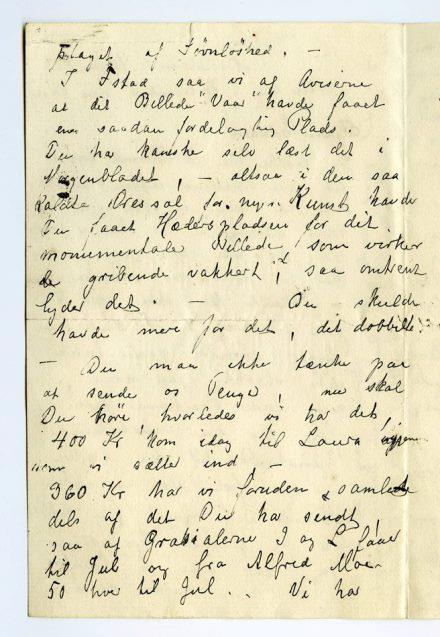 plaget af Søvnløshed. —
I Ystad saa vi af Aviserne
at dit Billede "Vaar" havde faaet
en saadan fordelagtig Plads.
Du har kanske selv læst det i
Morgenbladet, — altsaa i den saa
kaldte Æressal for nyere Kunst havde
Du faaet Hæderspladsen for dit
monumentale Billede, som virker
gribende vakkert, saa omtrent
lyder det. — Du skulde
havde mere for det, det dobbelte.
— Du maa ikke tænke paa
at sende os Penge, nu skal
Du høre hvorledes vi har det,
400 Kr kom idag til Laura
som vi sætter ind —
360 Kr har vi foruden samlet
dels af det Du har sendt,
saa af Gratialerne I og L faaer
til Jul og fra Alfred Moe
50 hver til Jul.. Vi har